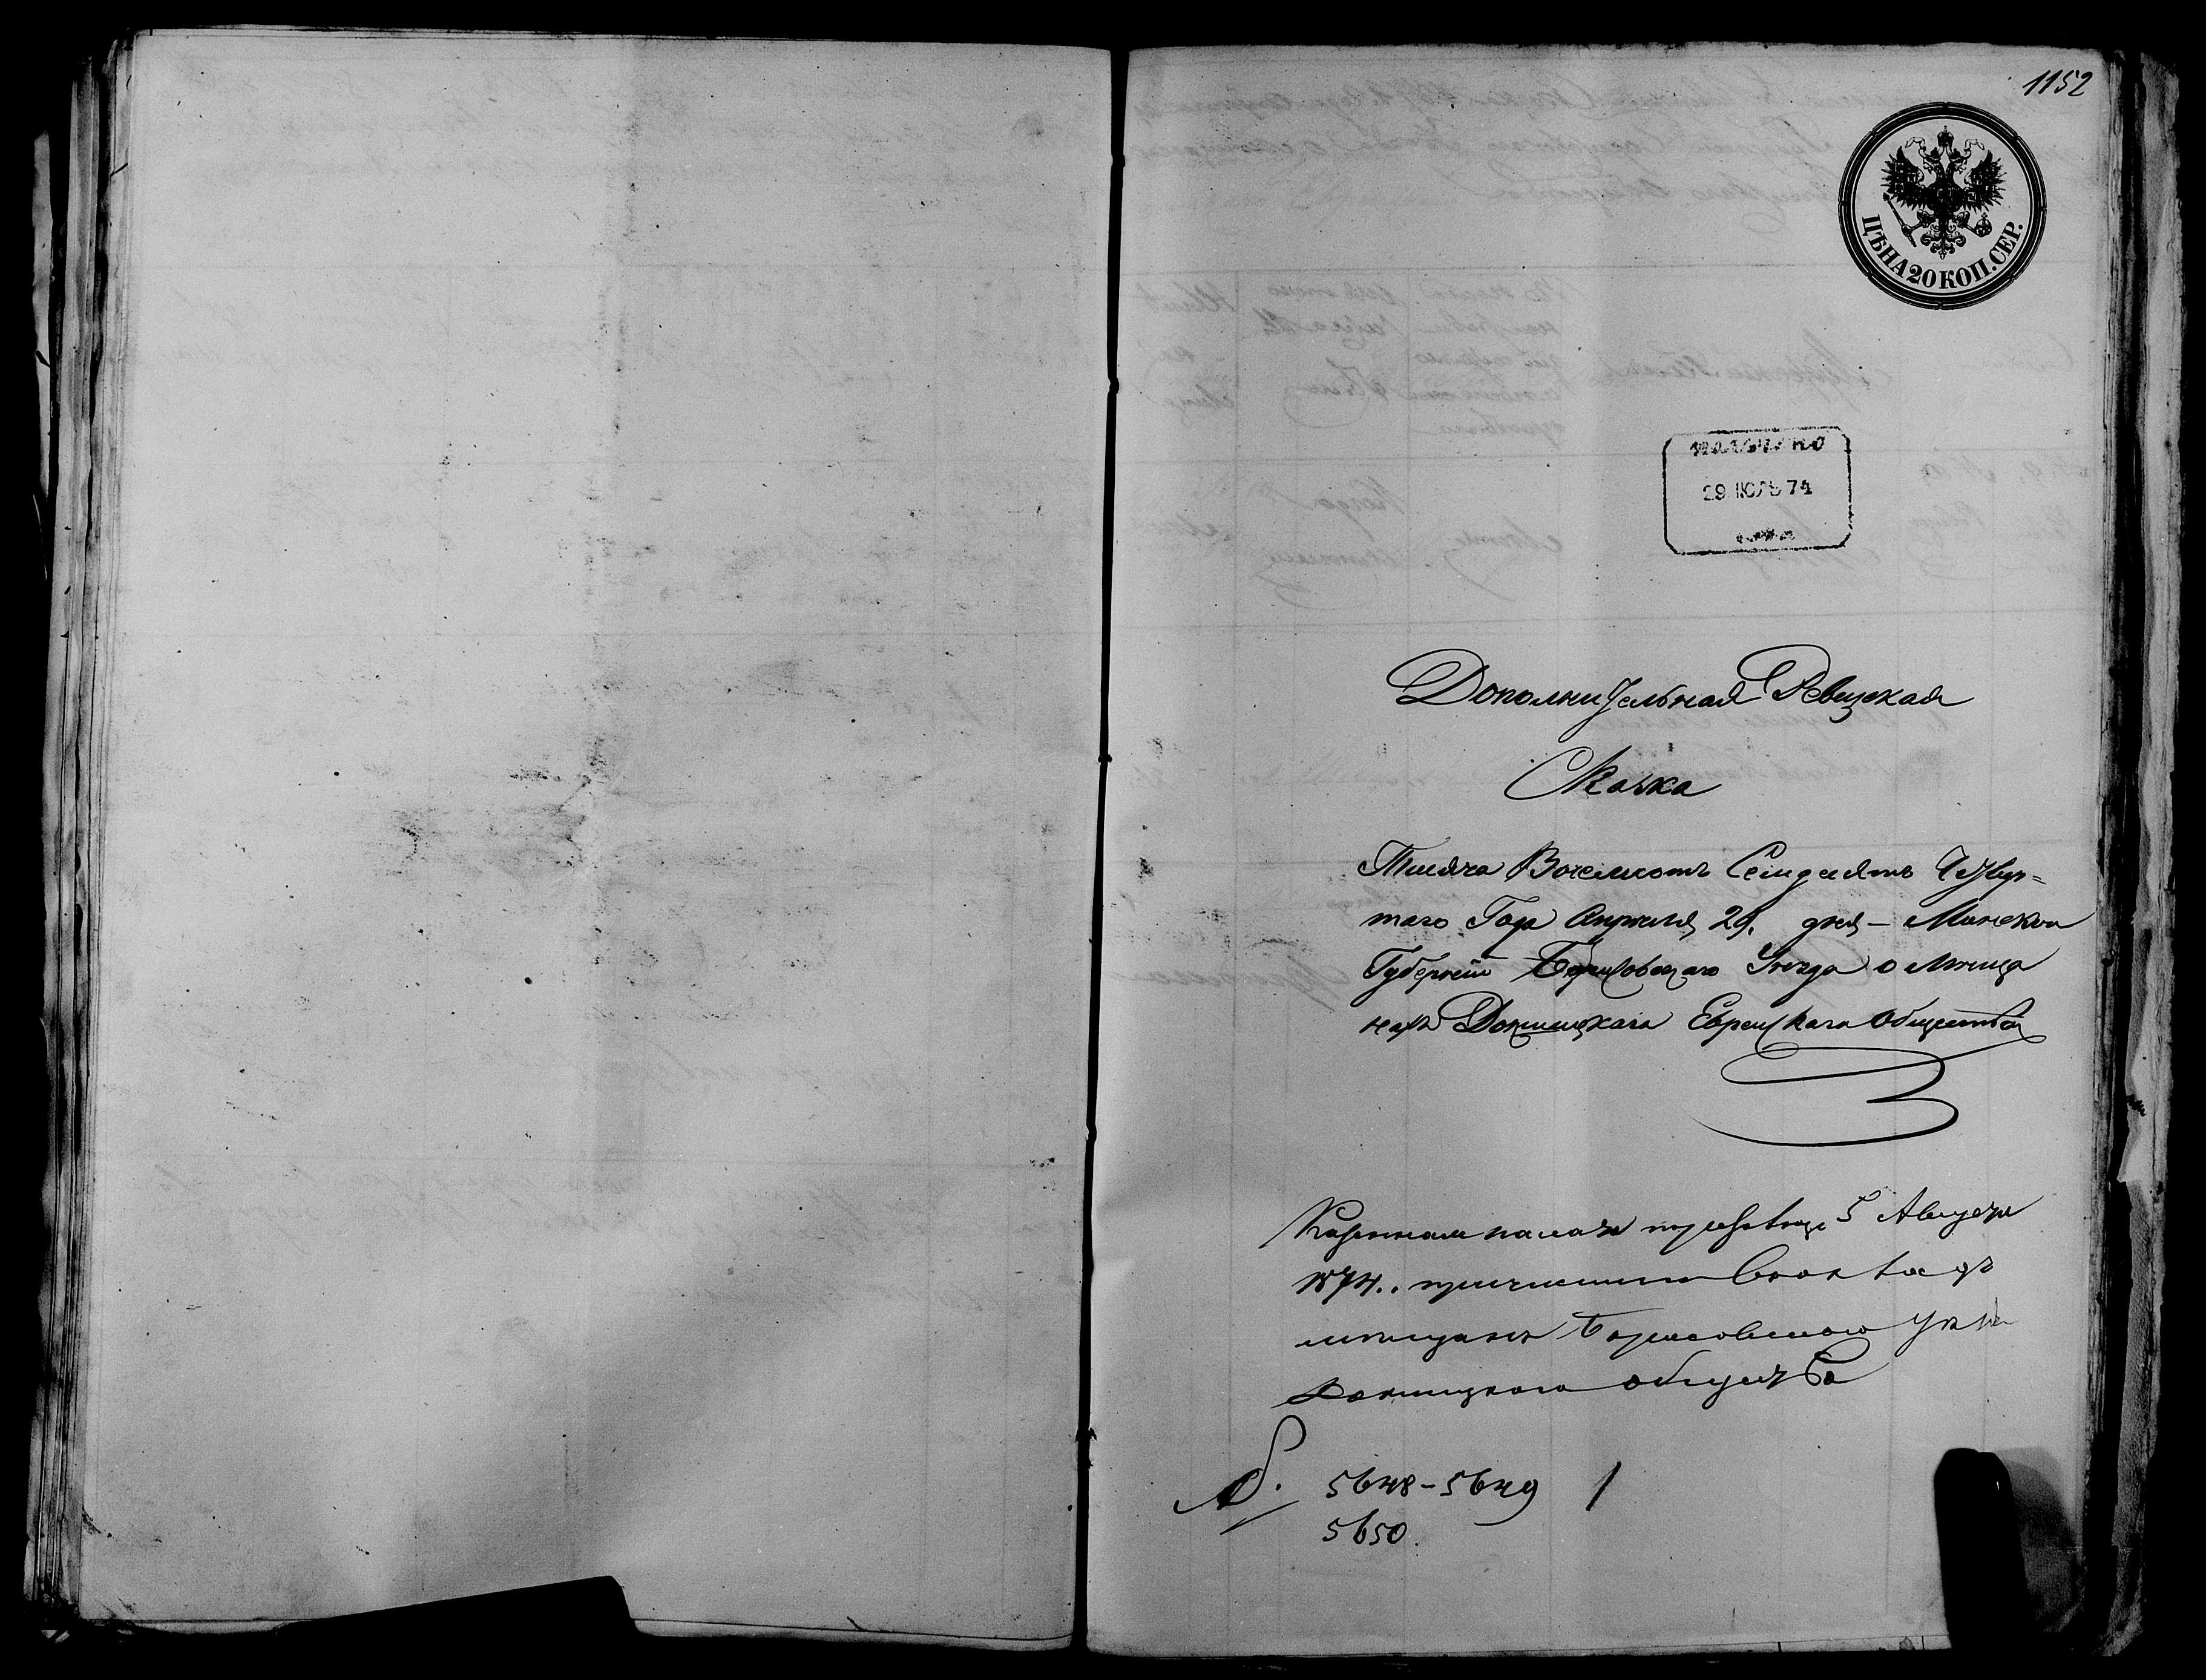 1152
ЦѢНА 20 КОП. СЕР.
29 ІЮЛЬ 74
Дополнительная Ревизская
Сказка
Тысяча Восемсотъ Семдесятъ Четвер=
таго Года Апреля 29. дня – Минской
Губерніи Борисовскаго Уезда о Мѣща
нахъ Докшицкаго Еврейскаго Общества
Казенная палата 5 Августа
1874.. въ окладъ
мѣщанъ Борисовскаго уѣз
Докшицкаго общества
№. 5648-5649 1
5650.